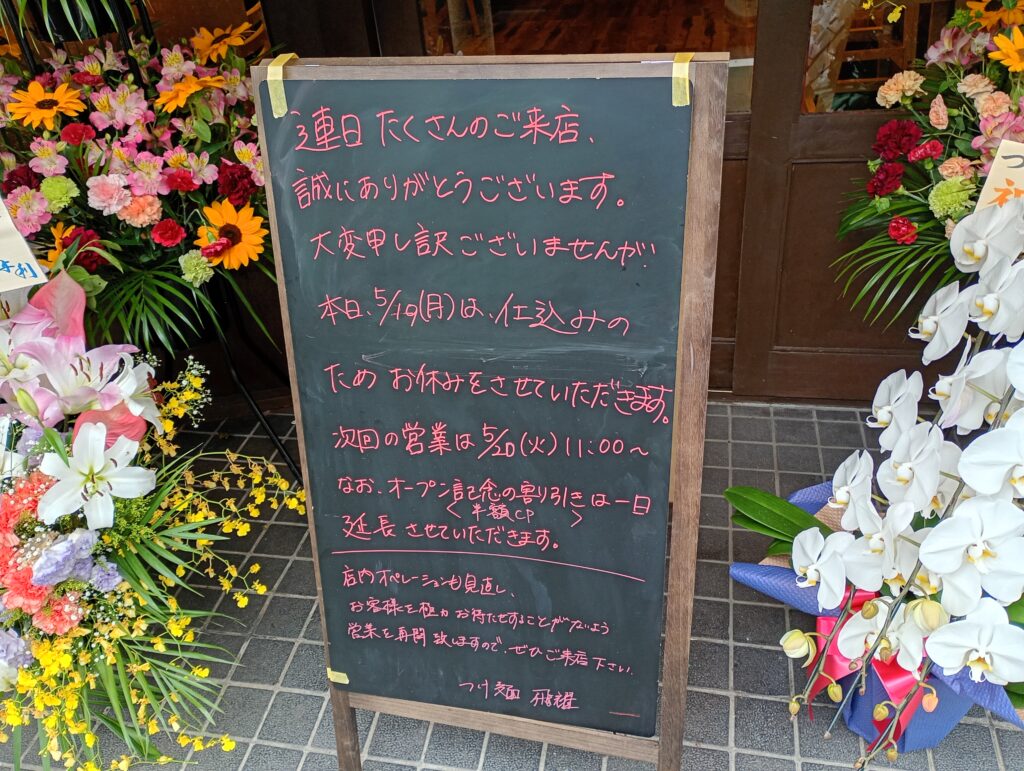 連日 たくさんのご来店、
誠にありがとうございます。
大変申し訳ございませんが、
本日、5/19(月)は、仕込みの
ため お休みをさせていただきます。
次回の営業は 5/20(火) 11:00〜
なお、オープン記念の割り引きは一日
<半額CP>
延長 させていただきます。
店内オペレーションも見直し、
お客様を極力 お待たせすることがないよう
営業を再開 致しますので、ぜひご来店 下さい。
つけ麺
つ
祝